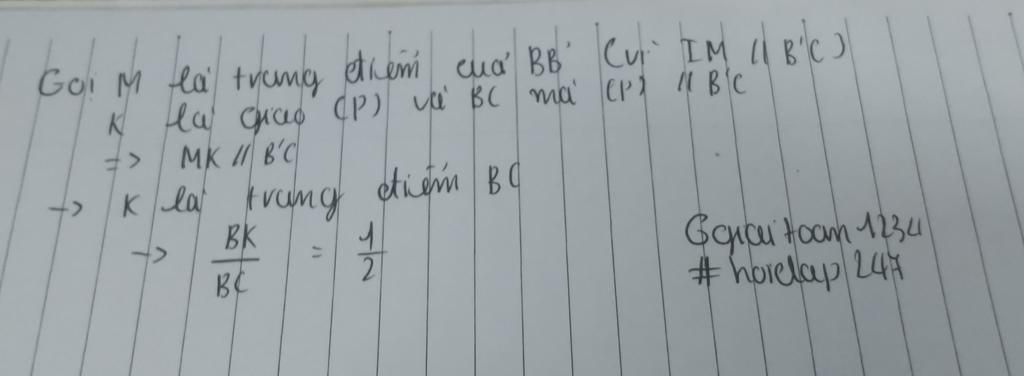 Gọi M là trung điểm của BB' (vì IM // B'C)
K là giao (P) và BC mà (P) // B'C
=> MK // B'C
-> K là trung điểm BC
-> BK/BC = 1/2
Ggiaitoan1234
# hoidap247